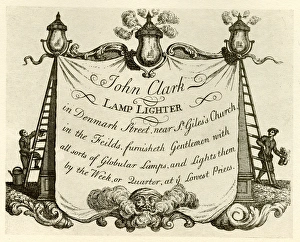 John Clark
LAMP LIGHTER
in Denmark Street, near St. Giles's Church,
in the Feilds, furnisheth Gentlemen with
all sorts of Globular Lamps, and Lights them
by the Week, or Quarter, at ye Lowest Prices.